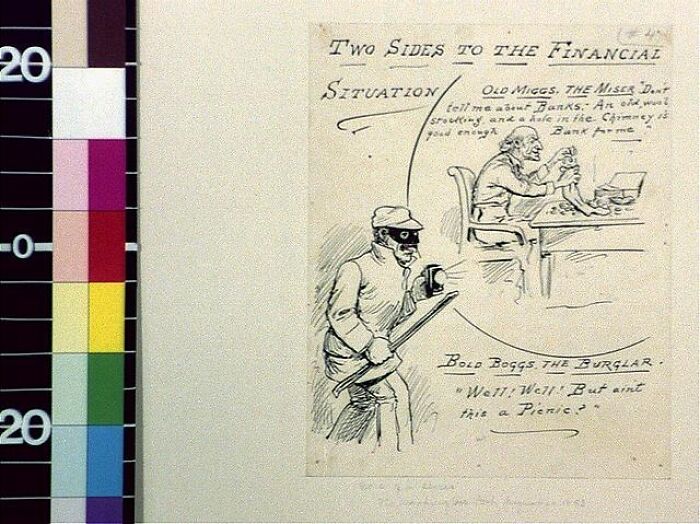 (#4)
TWO SIDES TO THE FINANCIAL
SITUATION
OLD MIGGS, THE MISER "Don't
tell me about Banks: An old wool
stocking and a hole in the Chimney is
good enough Bank for me"
BOLD BOGGS, THE BURGLAR.
"Well! Well! But aint
this a Picnic?"
20
0
20